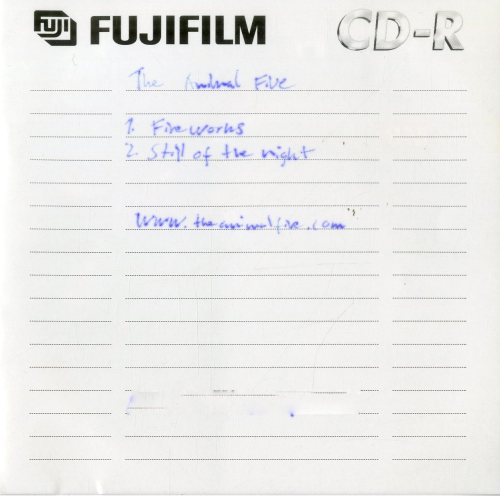 FUJI FUJIFILM CD-R
The Animal Five
1. Fireworks
2. Still of the night
www.theanimalfive.com